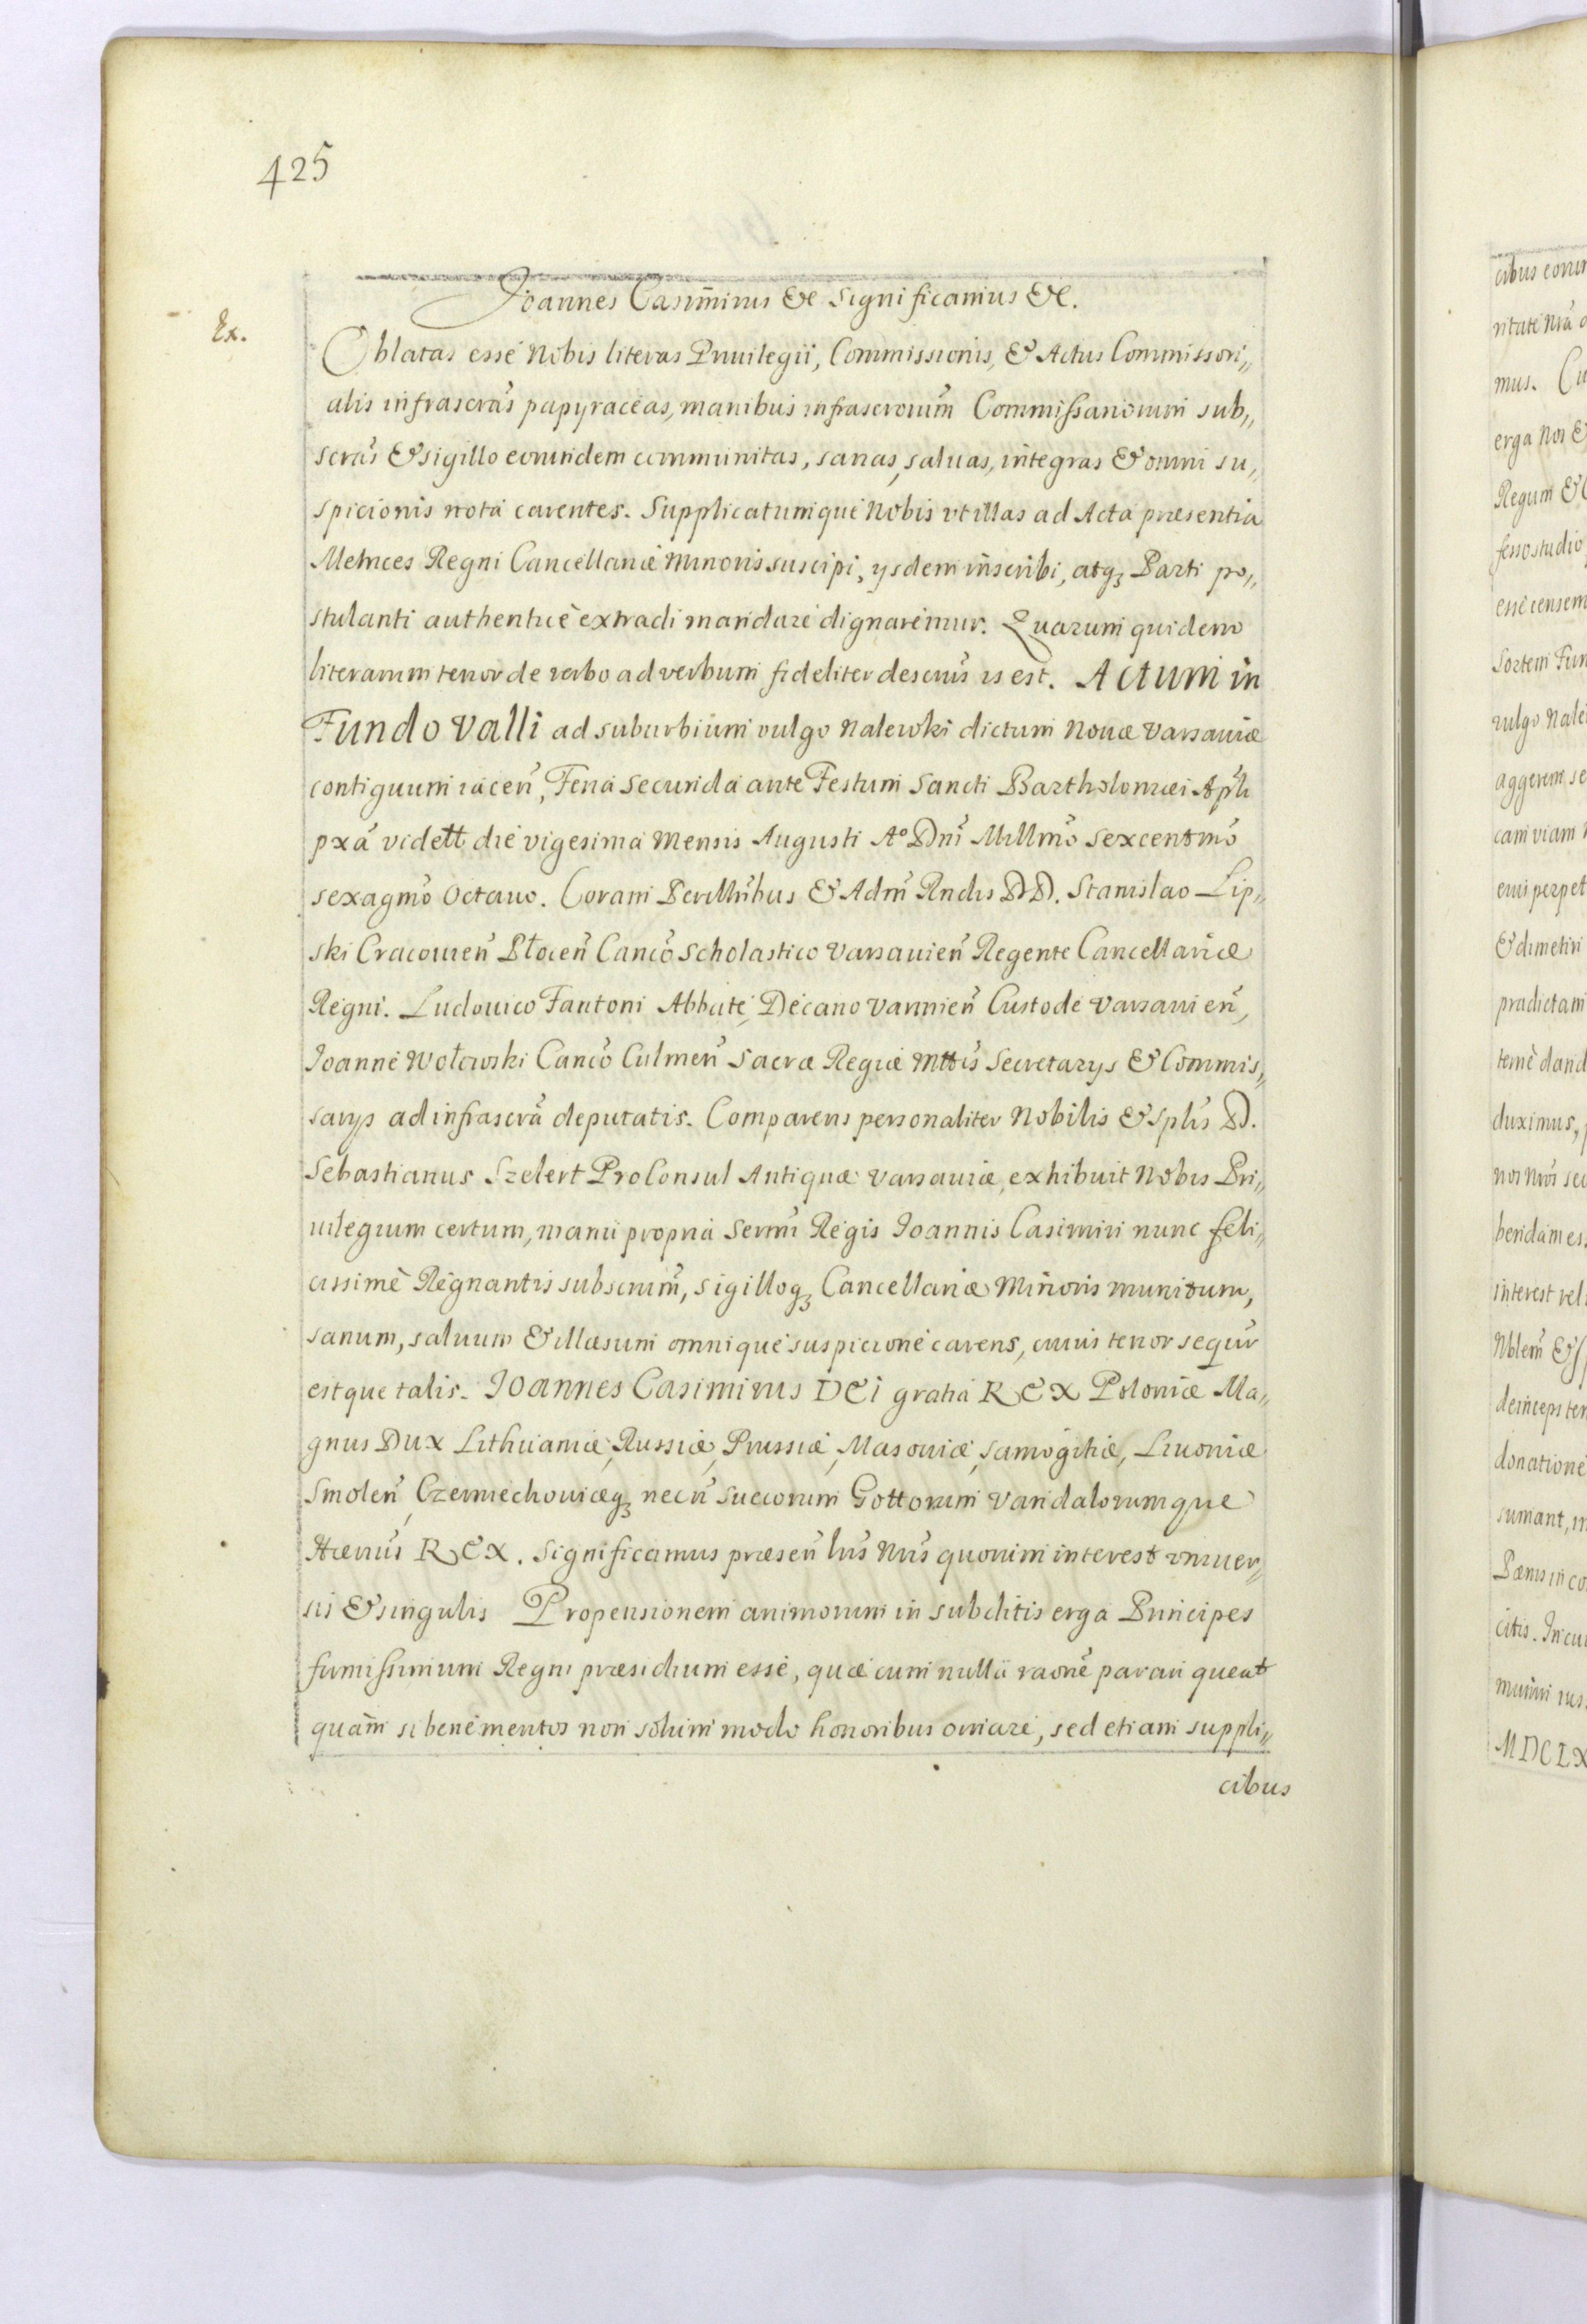 425
Joannes Casimirus &c Significamus &c.
Ex.
Oblatas esse Nobis literas Priuilegii, Commissionis, & Actus Commissori„
alis infrascrãs papyraceas, manibus infrascrorum̃ Commissariorum sub„
scrãs & sigillo eorundem communitas, sanas, saluas, integras & omni su„
spicionis nota carentes. Supplicatumque Nobis vt illas ad Acta præsentia
Metrices Regni Cancellariæ Minoris suscipi, ysdem inscribi, atqꝫ Parti po„
stulanti authenticè extradi mandare dignaremur. Quarum quidem
literarum tenor de verbo ad verbum fideliter descrus̃ is est. Actum in
Fundo Valli ad suburbium vulgo Nalewki dictum Nouæ Varsauiæ
contiguum iaceñ, Feria Secunda ante Festum Sancti Bartholomæi Apl̃i
pxã vidett die vigesima Mensis Augusti Aº Dnĩ Millmõ Sexcentmõ
sexagmõ Octauo. Coram Perillr̃ibus & Adm̃ Rñdis DD. Stanislao Lip„
ski Cracouieñ Płoceñ Cancõ Scholastico Varsauieñ Regente Cancellariæ
Regni. Ludouico Fantoni Abbate, Decano Varmieñ Custode Varsauieñ,
Joanne Wołowski Cancõ Culmeñ Sacræ Regiæ Mttis̃ Secretarys & Commis„
sarys ad infrascrã deputatis. Comparens personaliter Nobilis & Splis̃ D.
Sebastianus Szelert ProConsul Antiquæ Varsauiæ, exhibuit Nobis Pri„
uilegium certum, manu propria Sermĩ Regis Joannis Casimiri nunc feli„
cissimè Regnantis subscrum̃, sigilloqꝫ Cancellariæ Minoris munitum,
sanum, saluum & illæsum omnique suspicione carens, cuius tenor sequr̃
estque talis. Joannes Casimirus DEI gratia REX Poloniæ Ma„
gnus Dux Lithuaniæ, Russiæ, Prussiæ, Masouiæ, Samogitiæ, Liuoniæ
Smoleñ, Czerniechouiæqꝫ necñ Suecorum Gottorum Vandalorumque
Hærius̃ REX. Significamus præseñ lris̃ Nris̃ quorum interest vniuer„
sis & singulis Propensionem animorum in subditis erga Principes
firmissimum Regni præsidium esse, quæ cum nulla raonẽ parari queat
quàm si benemeritos non solum modo honoribus ornare, sed etiam suppli„
cibus